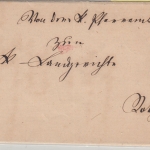 Von dem k. Pfarramt
zum
k. Landgerichte